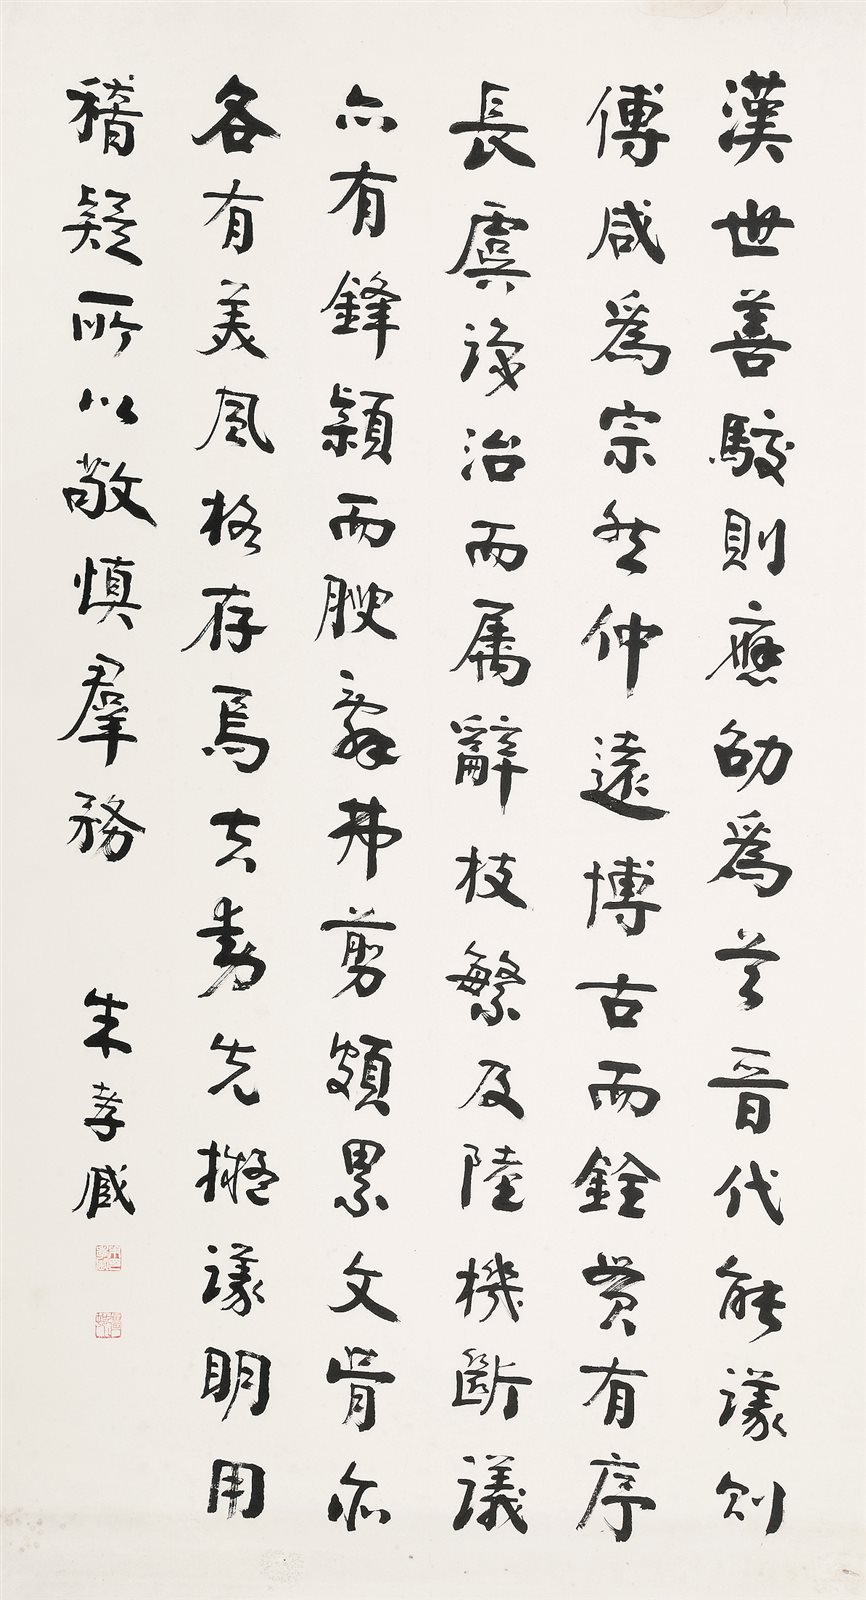 漢世善駮則應劭爲首晉代能議則
傅咸爲宗然仲遠博古而銓貫有序
長虞識治而属辭枝繁及陸機斷議
亦有鋒穎而腴辭弗剪頗累文骨亦
各有美風格存焉夫動先擬議明用
稽疑所以敬慎羣務
朱孝臧